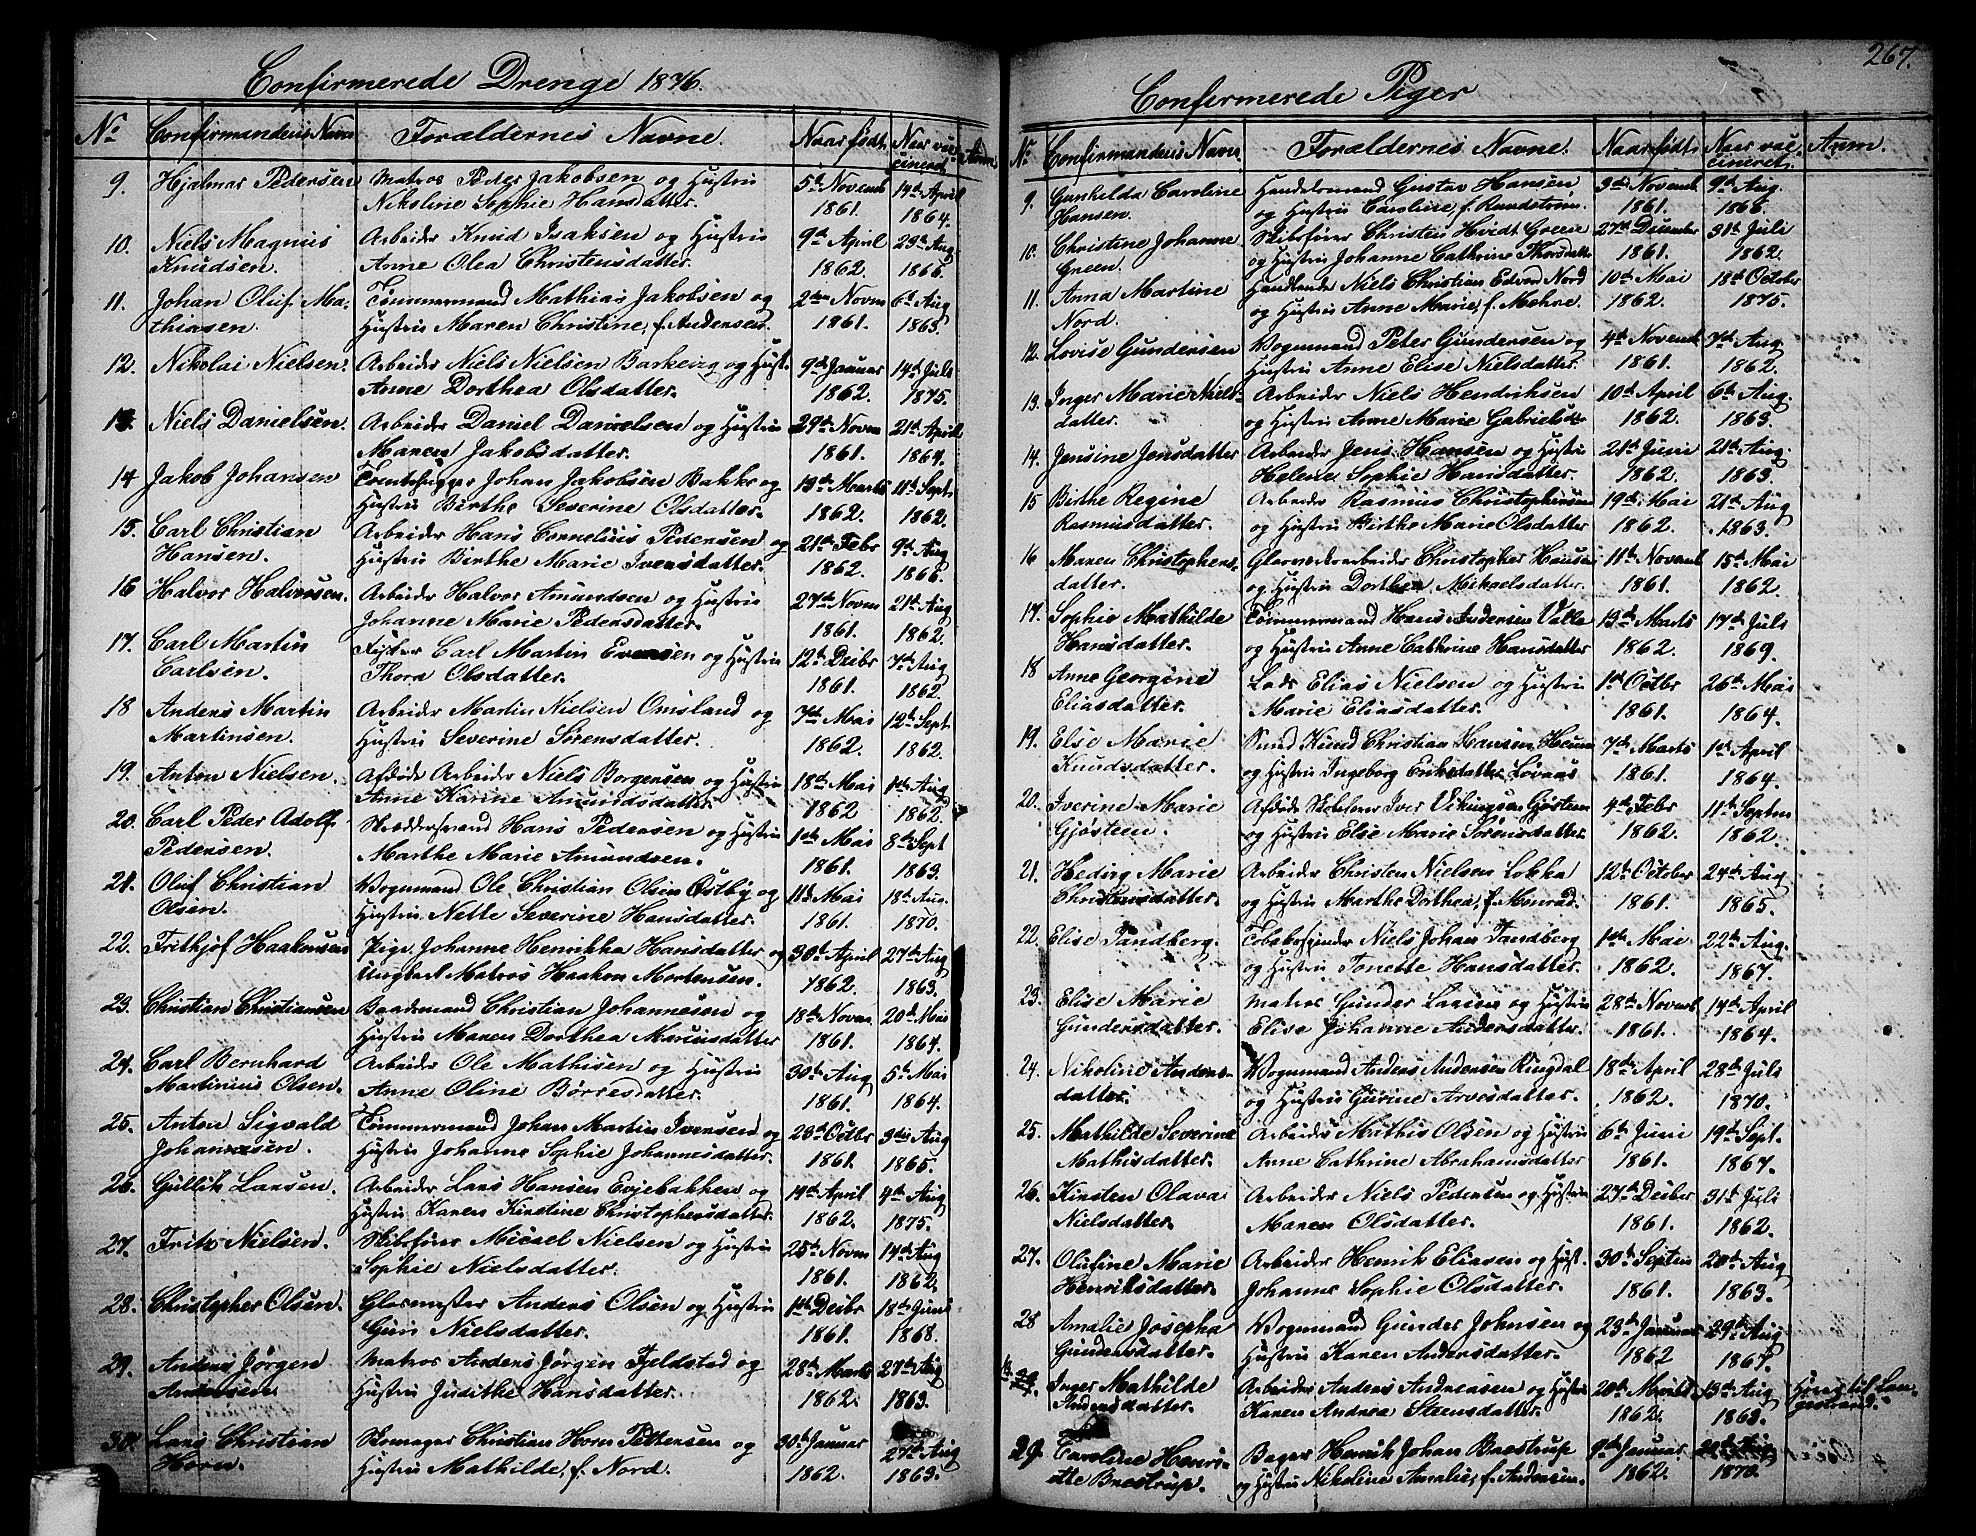 267.
Confirmerede Drenge 1876.
No. Confirmandens Navn Forældernes Navne. Naar født. Naar vaccineret. Anm.
9. Hjalmar Pedersen Matros Peder Jakobsen og Hustru 5te Novemb 14de April
Nikoline Sophie Hansdatter. 1861. 1864.
10. Niels Magnus Arbeider Knud Isaksen og Hustru 9de April 29de Aug
Knudsen. Anne Olea Christensdatter. 1862. 1866.
11. Johan Oluf Ma- Tømmermand Mathias Jakobsen og 2den Novm 6te Aug
thiasen. Hustru Maren Christine, f. Andersen. 1861. 1863.
12. Nikolai Nielsen. Arbeider Niels Nielsen Barkevig og Hust. 9de Januar 14de Juli
Anne Dorthea Olsdatter. 1862. 1875.
13. Niels Danielsen. Arbeider Daniel Danielsen og Hustru 29de Novm 21de April
Maren Jakobsdatter. 1861. 1864.
14 Jakob Johansen Tomtehugger Johan Jakobsen Bakke og 13de Marts 11te Sept.
Hustru Birthe Severine Olsdatter. 1862. 1862.
15. Carl Christian Arbeider Hans Cornelius Pedersen og 21de Febr 9de Aug
Hansen. Hustru Birthe Marie Iversdatter. 1862. 1866.
16 Halvor Halvorsen. Arbeider Halvor Amundsen og Hustru 27de Novm 21de Aug
Johanne Marie Pedersdatter. 1861. 1862.
17. Carl Martin Fisker Carl Martin Evensen og Hustru 12te Decbr 7de Aug
Carlsen. Thora Olsdatter. 1861. 1862
18 Anders Martin Arbeider Martin Nielsen Omsland og 7de Mai 12te Sept
Martinsen. Hustru Severine Sørensdatter. 1862. 1862.
19. Anton Nielsen. Afdøde Arbeider Niels Borgersen og Hustru 18de Mai 1ste Aug
Anne Karine Amundsdatter. 1862 1862.
20. Carl Peder Adolf Skræddersvend Hans Pedersen og Hustru 1ste Mai 8de Sept
Pedersen. Marthe Marie Amundsen. 1861. 1863.
21. Oluf Christian Vognmand Ole Christian Olsen Østby og 11te Mai 18de Aug.
Olsen. Hustru Nette Severine Hansdatter. 1861. 1870.
22. Frithjof Haakonsen Pige Johanne Henrikka Hansdatter og 30de April 27de Aug
Ungkarl Matros Haakon Mortensen. 1862. 1863.
23. Christian Christiansen Baadsmand Christian Johannesen og 18de Novm 20de Mai
Hustru Maren Dorthea Mariusdatter 1861. 1864.
24. Carl Bernhard Arbeider Ole Mathisen og Hustru 30de Aug 5te Mai
Martinius Olsen. Anne Oline Børresdatter. 1861. 1864.
25. Anton Sigvald Tømmermand Johan Martin Iversen og 23de Octbr 3die Aug
Johannesen. Hustru Johanne Sophie Johannesdatter. 1861. 1865.
26. Gullik Larsen. Arbeider Lars Hansen Evjebakken og 14de April 4de Aug
Hustru Karen Kirstine Christophersdatter. 1862. 1875.
27. Fritz Nielsen. Skibsfører Micael Nielsen og Hustru 25de Novm 14de Aug
Sophie Nielsdatter. 1861. 1862.
28. Christopher Olsen. Glasmester Anders Olsen og Hustru 1ste Decbr 18de Juni
Guri Nielsdatter. 1861. 1868.
29. Anders Jørgen Matros Anders Jørgen Fjeldstad og 28de Marts 27de Aug
Andersen. Hustru Judithe Hansdatter. 1862. 1863.
30. Lars Christian Skomager Christian Horn Pettersen og 30te Januar 27de Aug
Horn. Hustru Mathilde, f. Nord. 1862. 1863.
Confirmerede Piger
No. Confirmandens Navn Forældernes Navne. Naar født. Naar vaccineret. Anm.
9. Gunhilda Caroline Handelsmand Gustav Hansen 3die Novemb 9de Aug.
Hansen. og Hustru Caroline, f. Rundstrøm. 1861. 1866.
10. Christine Johanne Skibsfører Christen Hvidt Green 27de December 31te Juli
Green. og Hustru Johanne Cathrine Thorsdatter 1861. 1862.
11. Anna Martine Handlende Niels Christian Edvon Nord 10de Mai 18de October
Nord. og Hustru Anne Marie, f. Mehre. 1862. 1875.
12. Lovise Gundersen Vognmand Peter Gundersen og 4de Novemb 7de Aug
Hustru Anne Elise Nielsdatter. 1861. 1862.
13. Inger Marie Niels- Arbeider Niels Hendriksen 10de April 6te Aug.
datter. og Hustru Anne Marie Gabrielsdtr 1862. 1863.
14. Jensine Jensdatter Arbeider Jens Hansen og Hustru 21de Juni 21de Aug
Helene Sophie Hansdatter. 1862. 1863.
15 Birthe Regine Arbeider Rasmus Christophersen 19de Mai 21de Aug
Rasmusdatter. og Hustru Birthe Marie Olsdatter 1862. 1863.
16 Maren Christophers- Glasværksarbeider Christopher Hansen 11te Novemb 15de Mai
datter. og Hustru Dorthea Mikaelsdatter. 1861. 1862.
17. Sophie Mathilde Tømmermand Hans Andersen Valle 13de Marts 17de Juli
Hansdatter. og Hustru Anne Cathrine Hansdatter 1862. 1869.
18 Anne Georgine Lods Elias Nielsen og Hustru 1ste Octbr 26de Mai
Eliasdatter. Marie Eliasdatter. 1861. 1864.
19. Else Marie Smed Knud Christian Hansen Heum 7de Marts 1ste April
Knudsdatter. og Hustru Ingeborg Eriksdatter Løvaas 1861. 1864.
20. Iverine Marie Afdøde Skibsfører Iver Vikingsen Gjøsteen 4de Febr 11te Septm
Gjøsteen. og Hustru Else Marie Sørensdatter. 1862. 1862.
21. Hedvig Marie Arbeider Christen Nielsen Løkka 12te October 24de Aug
Christensdatter. og Hustru Marthe Dorthea, f. Monrad. 1861. 1865.
22. Elise Tandberg. Tobaksspinder Niels Johan Tandberg 1ste Mai 22de Aug.
og Hustru Tonette Hansdatter. 1862. 1867.
23. Elise Marie Matros Gunder Larsen og Hustru 28de Novemb 14de April
Gundersdatter. Elise Johanne Andersdatter. 1861. 1864.
24. Nikoline Anders- Vognmand Anders Andersen Ringdal 18de April 28de Juli
datter. og Hustru Gurine Arvesdatter. 1862. 1870.
25. Mathilde Severine Arbeider Mathis Olsen og Hustru 6te Juni 19de Sept.
Mathisdatter. Anne Cathrine Abrahamsdatter 1861. 1867.
26. Kirsten Olava Arbeider Niels Pedersen og Hustru 27de Decber 31te Juli
Nielsdatter. Maren Olsdatter. 1861. 1862.
27. Olufine Marie Arbeider Henrik Eliasen og Hust. 30te Septm 20de Aug
Henriksdatter. Johanne Sophie Olsdatter. 1861. 1863.
28 Amalie Josepha Vognmand Gunder Johnsen og 23de Januar 29de Aug
Gundersdatter. Hustru Karen Andersdatter. 1862 1867.
Inger Mathilde Arbeider Anders Andreasen og Hustru 20de Marts 13de Aug Hører til Lan-
Andersdatter. Karen Andrea Steensdatter. 1862. 1863. gestrand.
29. Caroline Henri- Bager Henrik Johan Baostrup 9de Januar 22de Aug
ette Baostrup. og Hustru Nikoline Amalie, f. Andersen. 1862. 1870.